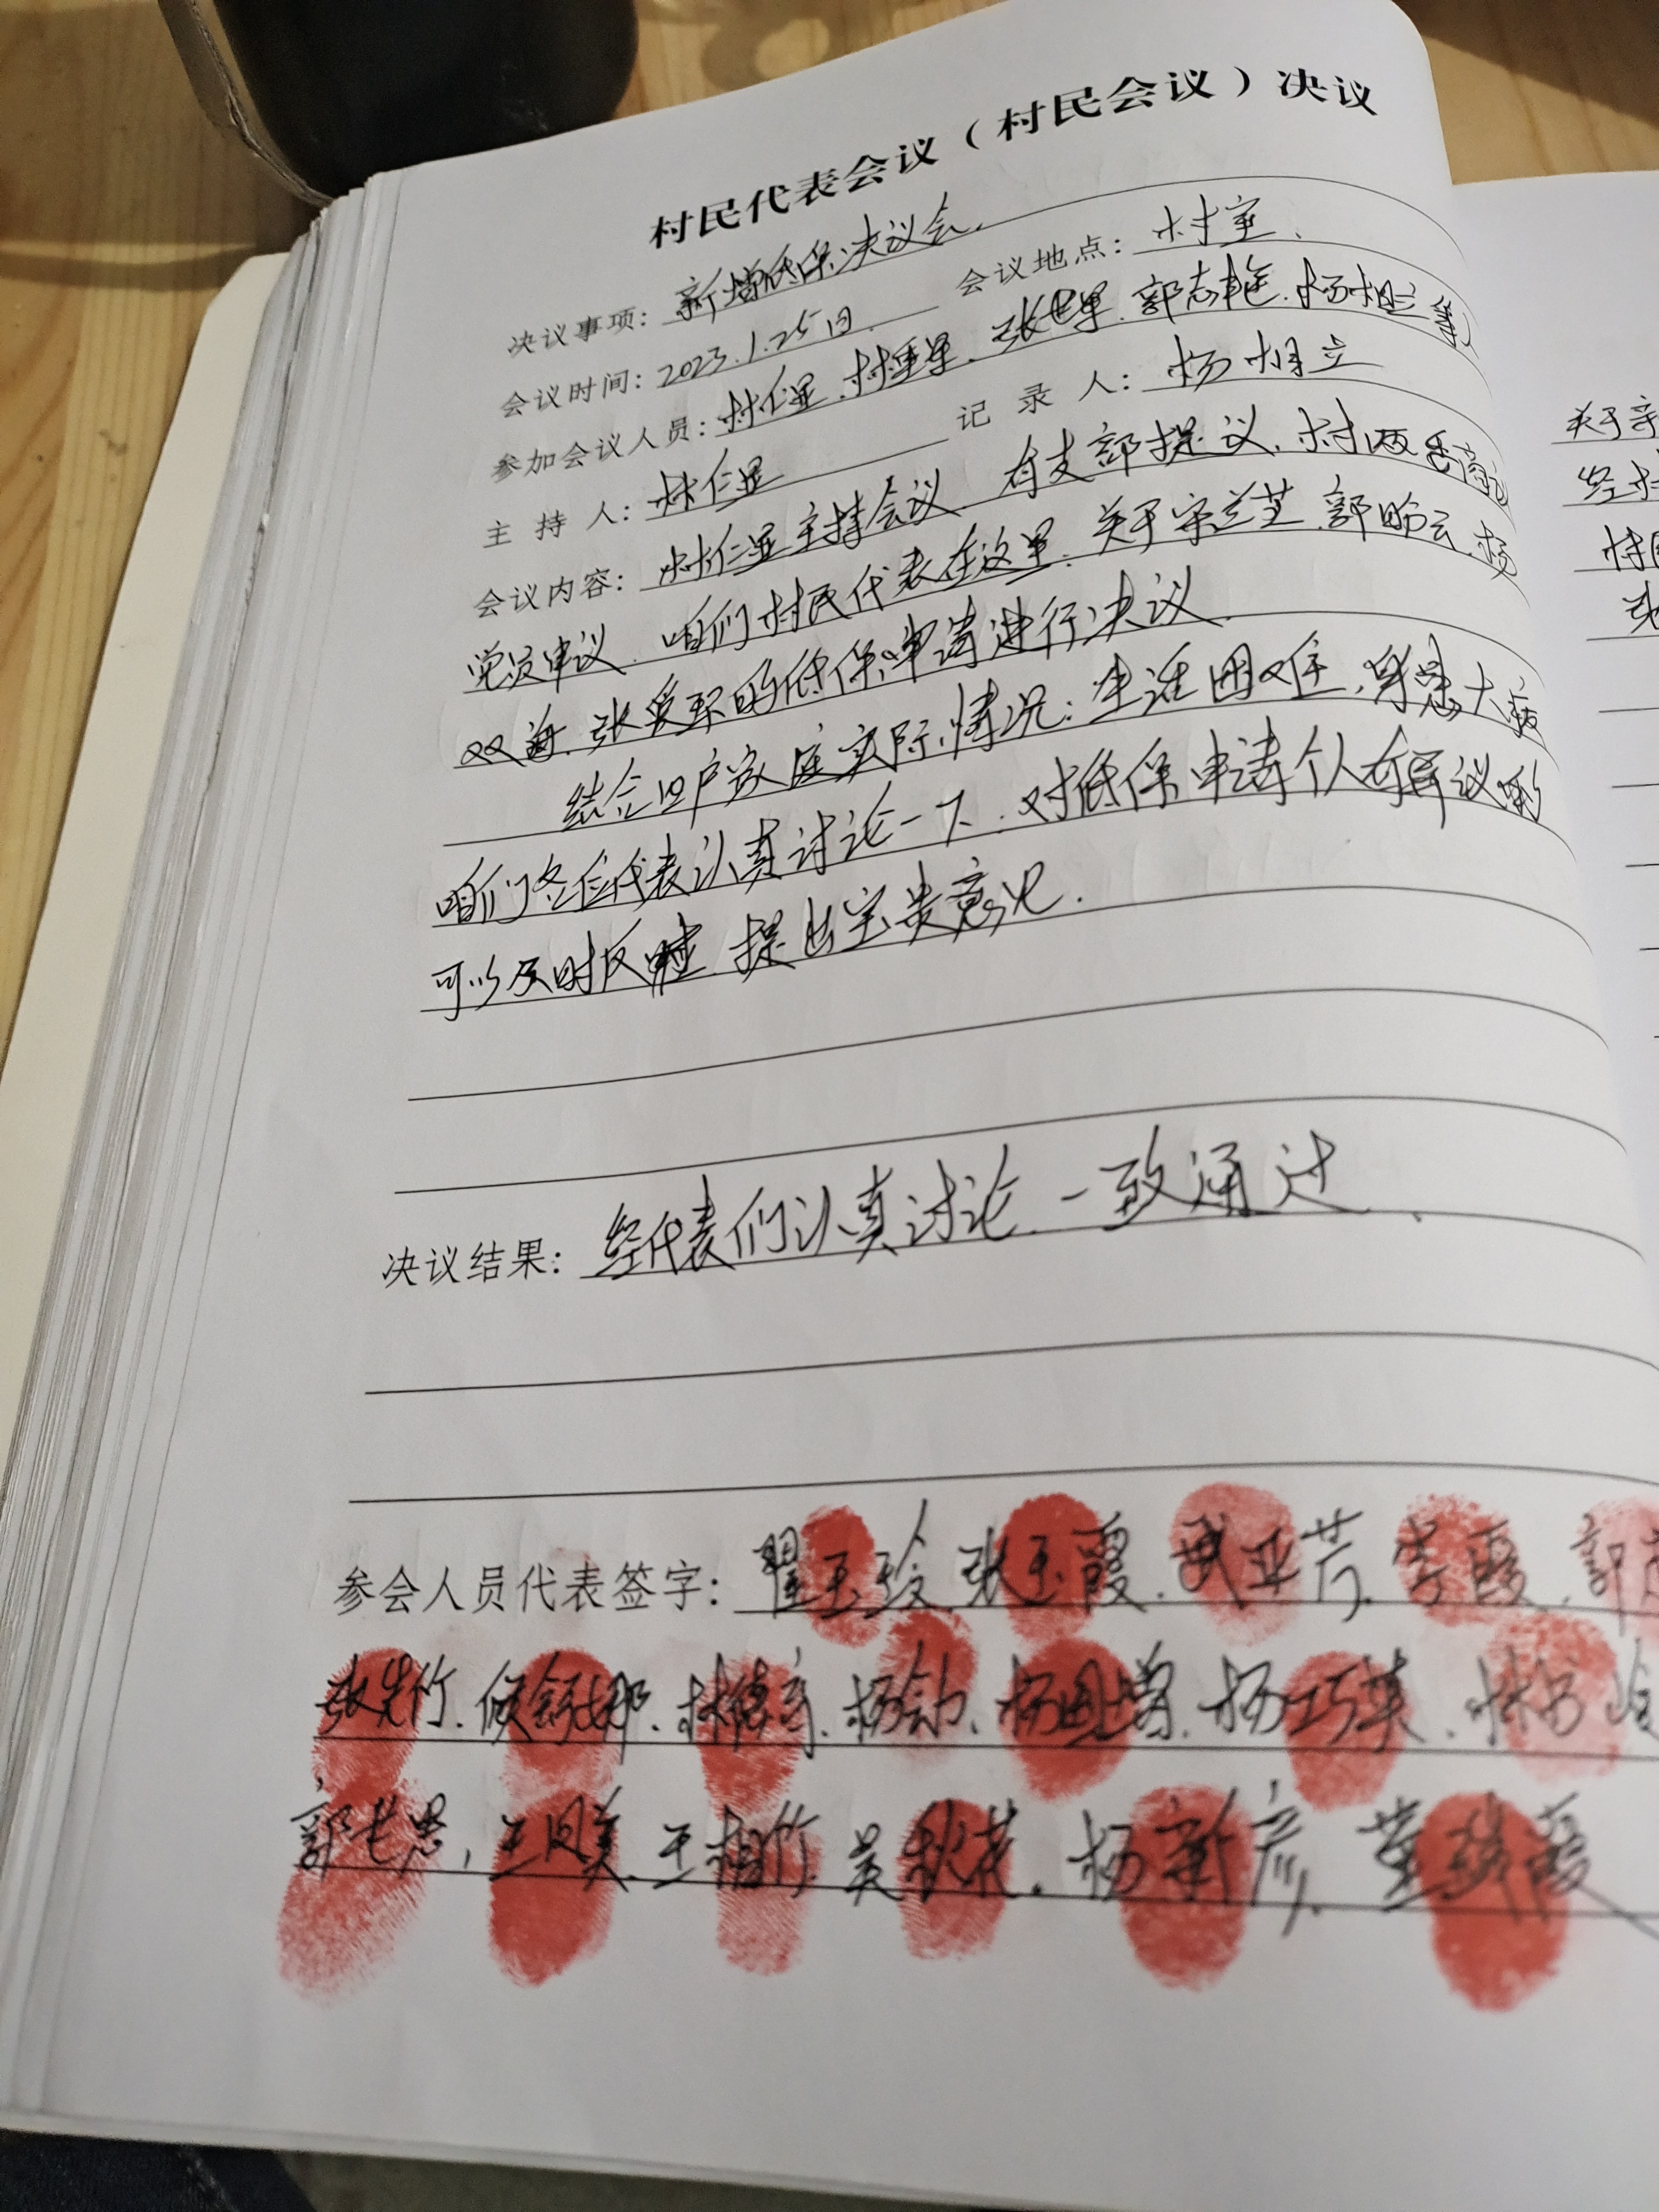 村民代表会议（村民会议）决议
决议事项：新增低保决议会.
会议时间：2023.1.25日. 会议地点：村室.
参加会议人员：林仁显. 张世军. 郭志艳. 杨相立等
主 持 人：林仁显 记 录 人：杨相立
会议内容：林仁显主持会议 有支部提议. 村两委商议
党员审议. 咱们村民代表在这里. 关于宋兰芝 郭盼云. 杨
双海. 张爱环的低保申请进行决议.
结合四户家庭实际情况：生活困难. 身患大病
咱们各位代表认真讨论一下. 对低保申请个人有异议的
可以及时反映 提出宝贵意见.
决议结果：经代表们认真讨论. 一致通过.
参会人员代表签字：翟玉玲 张玉霞. 武亚芹. 李霞. 郭
张先竹. 杨剑. 杨国增. 杨巧英. 林书
郭老恩, 王凤美. 王相竹. 吴秋花. 杨新彦. 董瑞霞
关于
经
村